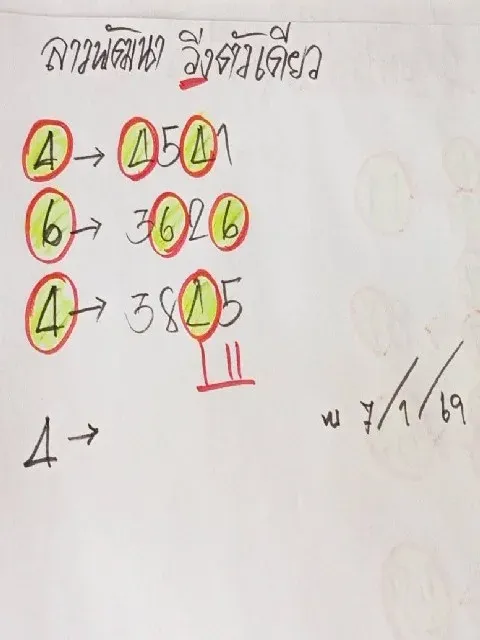 ลาวพัฒนา วิ่งตัวเดียว
4 → 4541
6 → 3626
4 → 3845
4 →
พ 7/1/69